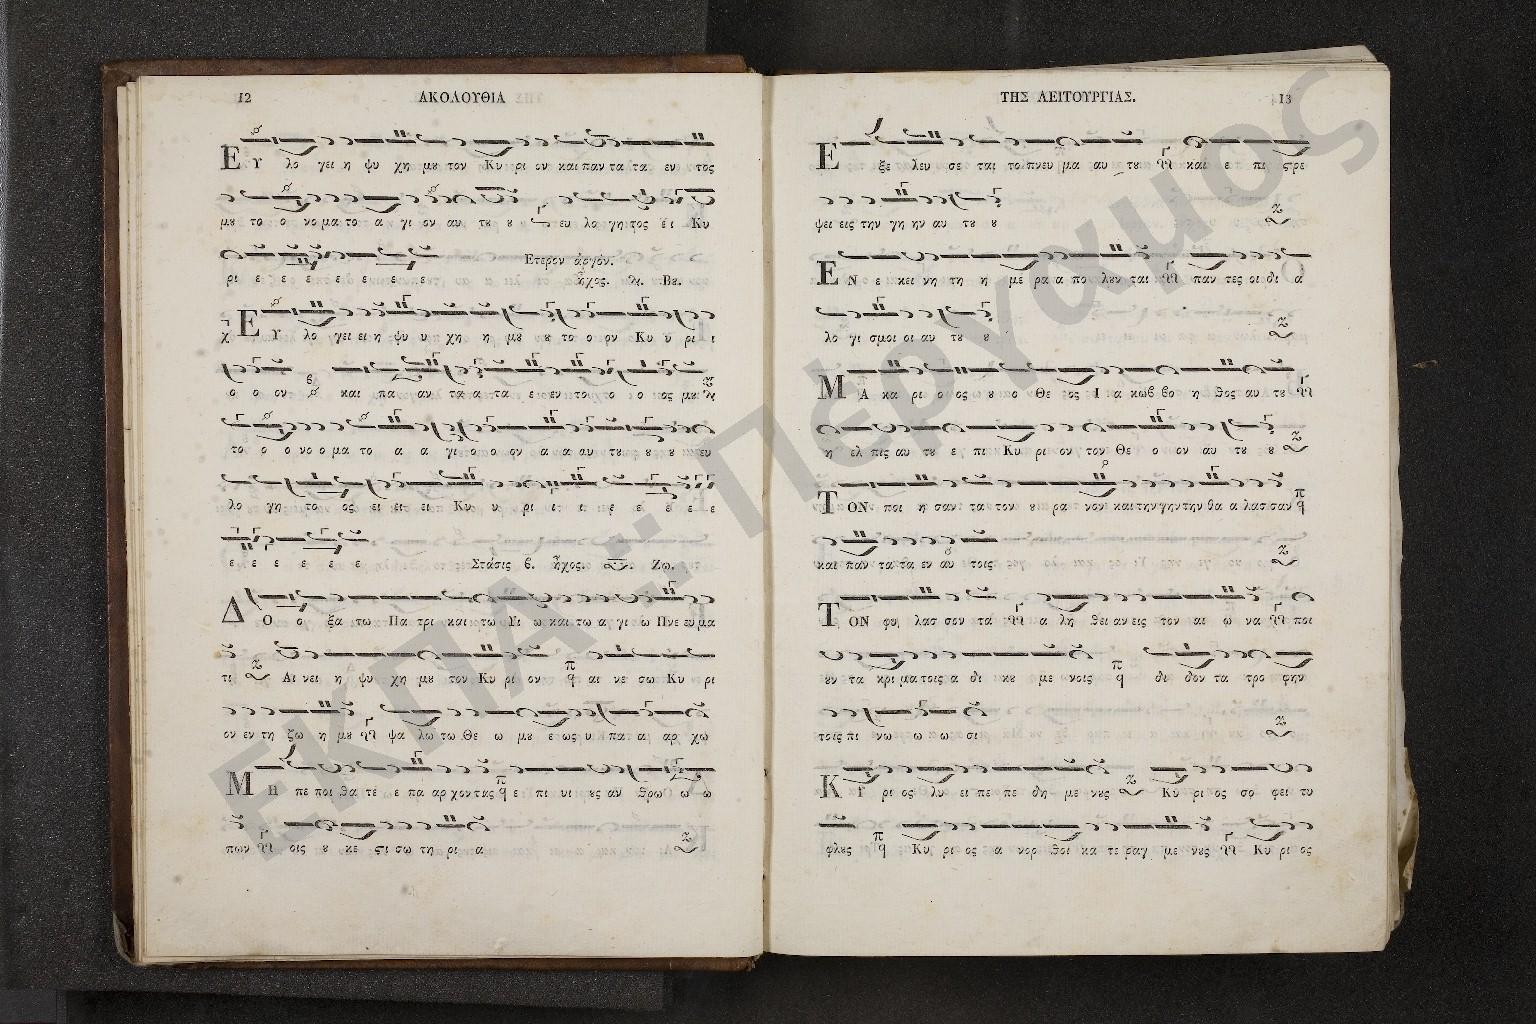 12 ΑΚΟΛΟΥΘΙΑ
ΕΥ λο γει η ψυ χη μȣ τον Κυ ρι ον και παν τα τα εν τος
μȣ το ο νο μα το α γι ον αυ τȣ ȣ ευ λο γη τος ει Κυ
ρι ε ε ε ε ε ε ε ε Ετερον ἀργόν.
ἦχος. Βȣ.
ΕΥ λο γει ει η ψυ υ χη η μȣ ȣ το ο ον Κυ υ ρι ι
ο ο ον και πα αν τα α τα ε εν το το ι ο πος μȣ
το ο ο νο ο μα το α α γι ο ο ον α α αυ τȣ ȣ ȣ ȣ ευ
λο γη το ος ει ει ει Κυ υ ρι ι ι ε ε ε ε ε
ε ε ε ε ε ε Στάσις β. ἦχος. Ζω.
ΔΟ ο ξα τω Πα τρι και τω Υι ω και τω α γι ω Πνε ευ μα
τι Αι νει η ψυ χη μȣ τον Κυ ρι ον π q αι νε σω Κυ ρι
ον εν τη ζω η μȣ ψα λω τω Θε ω μȣ ε ως υ πα α αρ χω
ΜΗ πε ποι θα τε ε πα αρ χον τας π q ε πι υι ȣς αν θρω ω ω
πων οις ȣ κε ϛι σω τη ρι α
ΤΗΣ ΛΕΙΤΟΥΡΓΙΑΣ. 13
Εξε λευ σε ται το πνευ μα αυ τȣ και ε πι ϛρε
ψει εις την γη ην αυ τȣ ȣ
ΕΝ ε κει νη τη η με ρα α πο λȣν ται παν τες οι δι α
λο γι σμοι οι αυ τȣ ȣ
ΜΑ κα ρι ο ος ȣ ο Θε ος Ι α κωβ βο η θος αυ τȣ
η ελ πις αυ τȣ ε πι Κυ ρι ον τον Θε ο ον αυ τȣ ȣ
ΤΟΝ ποι η σαν τα τον ȣ ρα νον και την γην την θα α λασ σαν π q
και παν τα τα εν αυ τοις
ΤΟΝ φυ λασ σον τα α λη θει αν εις τον αι ω να ποι
ȣν τα κρι μα τοις α δι κȣ με νοις π q δι δον τα τρο φην
τοις πι νω ω ω σι
ΚΥ ρι ος λυ ει πε πε δη με νȣς Κυ ρι ος σο φει τυ
φλȣς π q Κυ ρι ος α νορ θοι κα τε ραγ με νȣς Κυ ρι ος
ΕΚΠΑ :: Πέργαμος